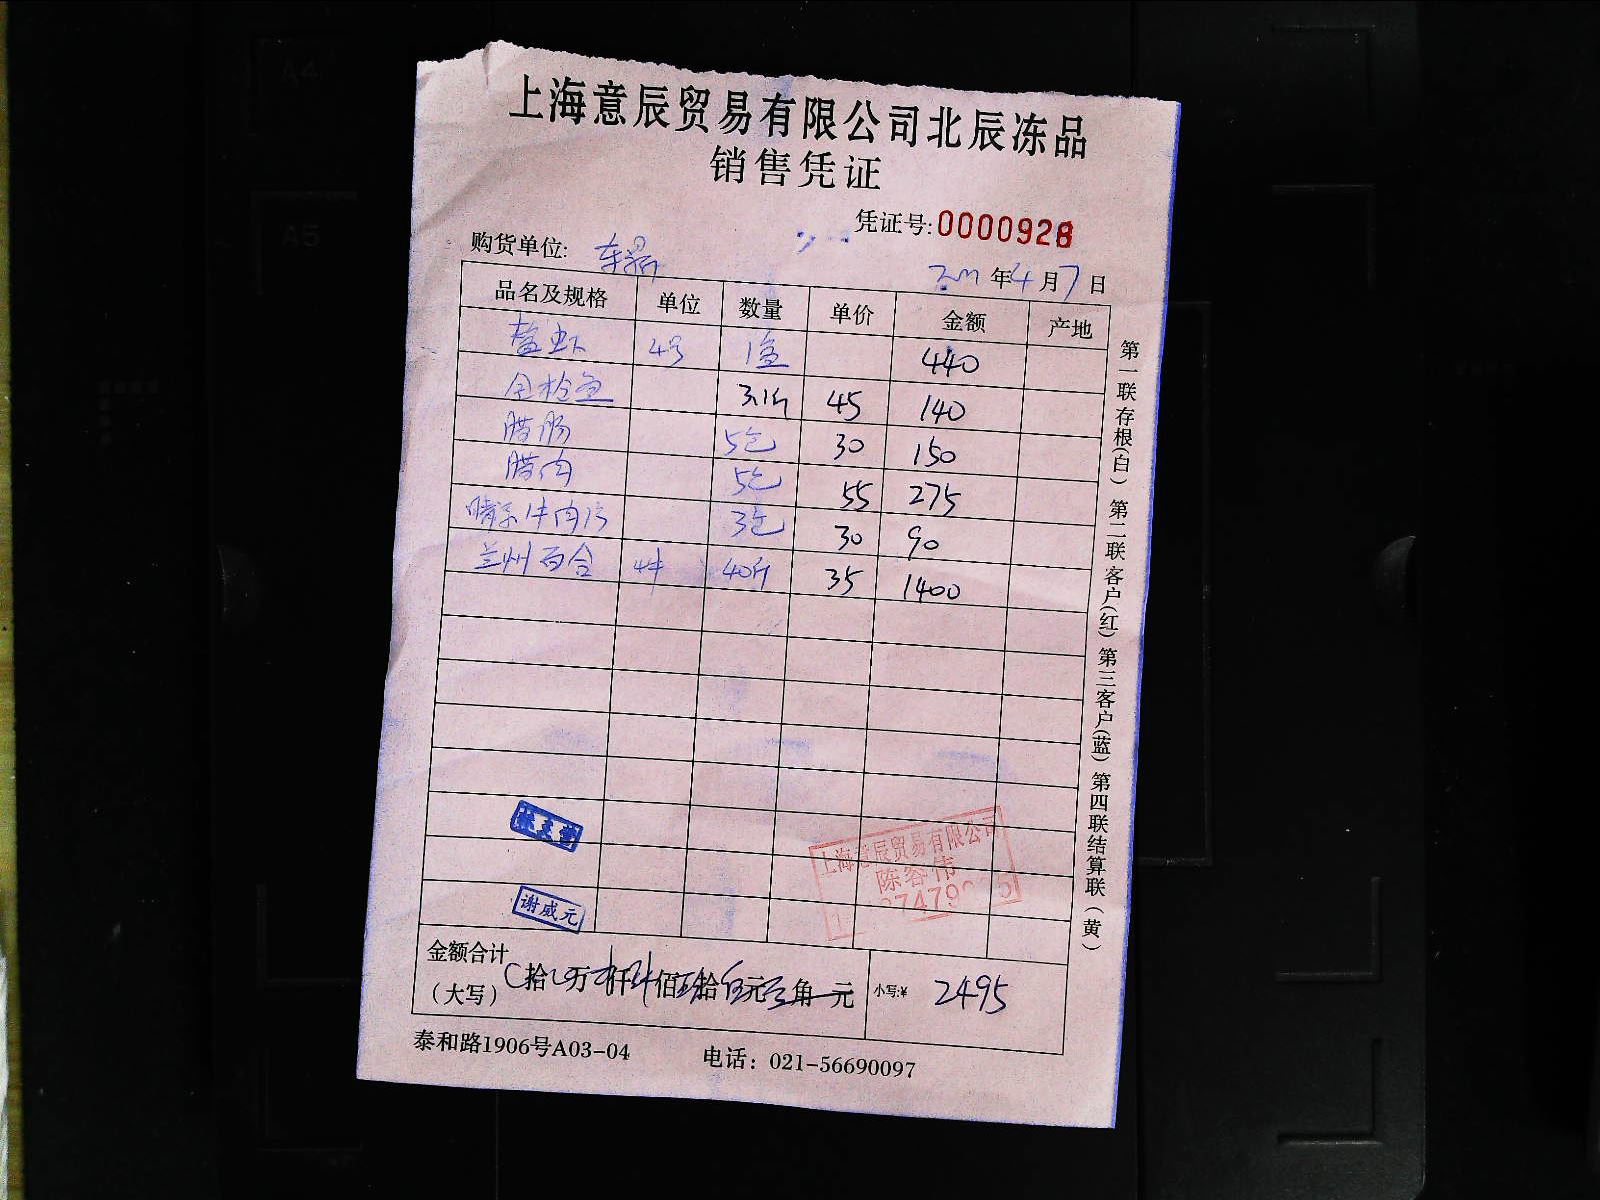 上海意辰贸易有限公司北辰冻品
销售凭证
凭证号:0000928
购货单位:
年4月7日
品名及规格 单位 数量 单价 金额 产地
盐 4号 1盒 440
鱼 3.1斤 45 140
腊肠 5包 30 150
腊肉 5包 55 275
牛肉 3包 30 90
兰州百合 40斤 35 1400
第一联存根(白) 第二联客户(红) 第三客户(蓝) 第四联结算联(黄)
上海意辰贸易有限公司
陈容伟
谢威元
金额合计
(大写) 拾 万 仟 佰 拾 元 角 元 小写:¥ 2495
泰和路1906号A03-04 电话:021-56690097